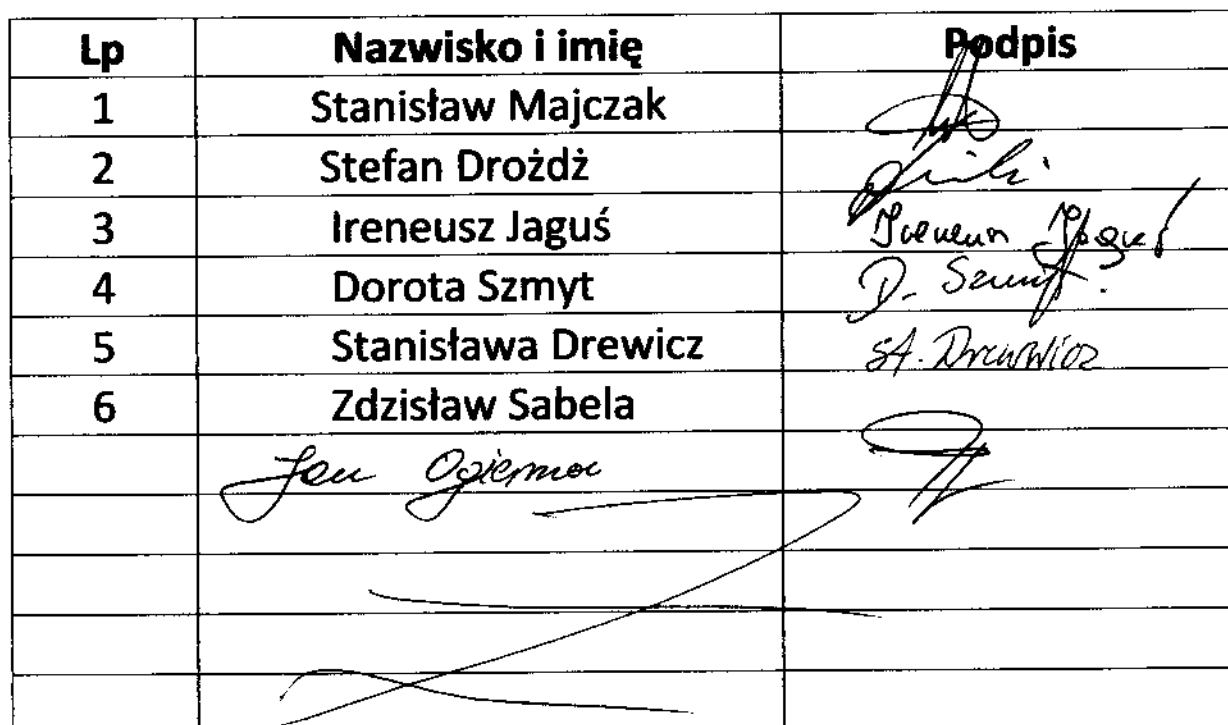 Lp Nazwisko i imię Podpis
1 Stanisław Majczak
2 Stefan Drożdż
3 Ireneusz Jaguś
4 Dorota Szmyt D. Szmyt
5 Stanisława Drewicz St. Drewicz
6 Zdzisław Sabela
Jan